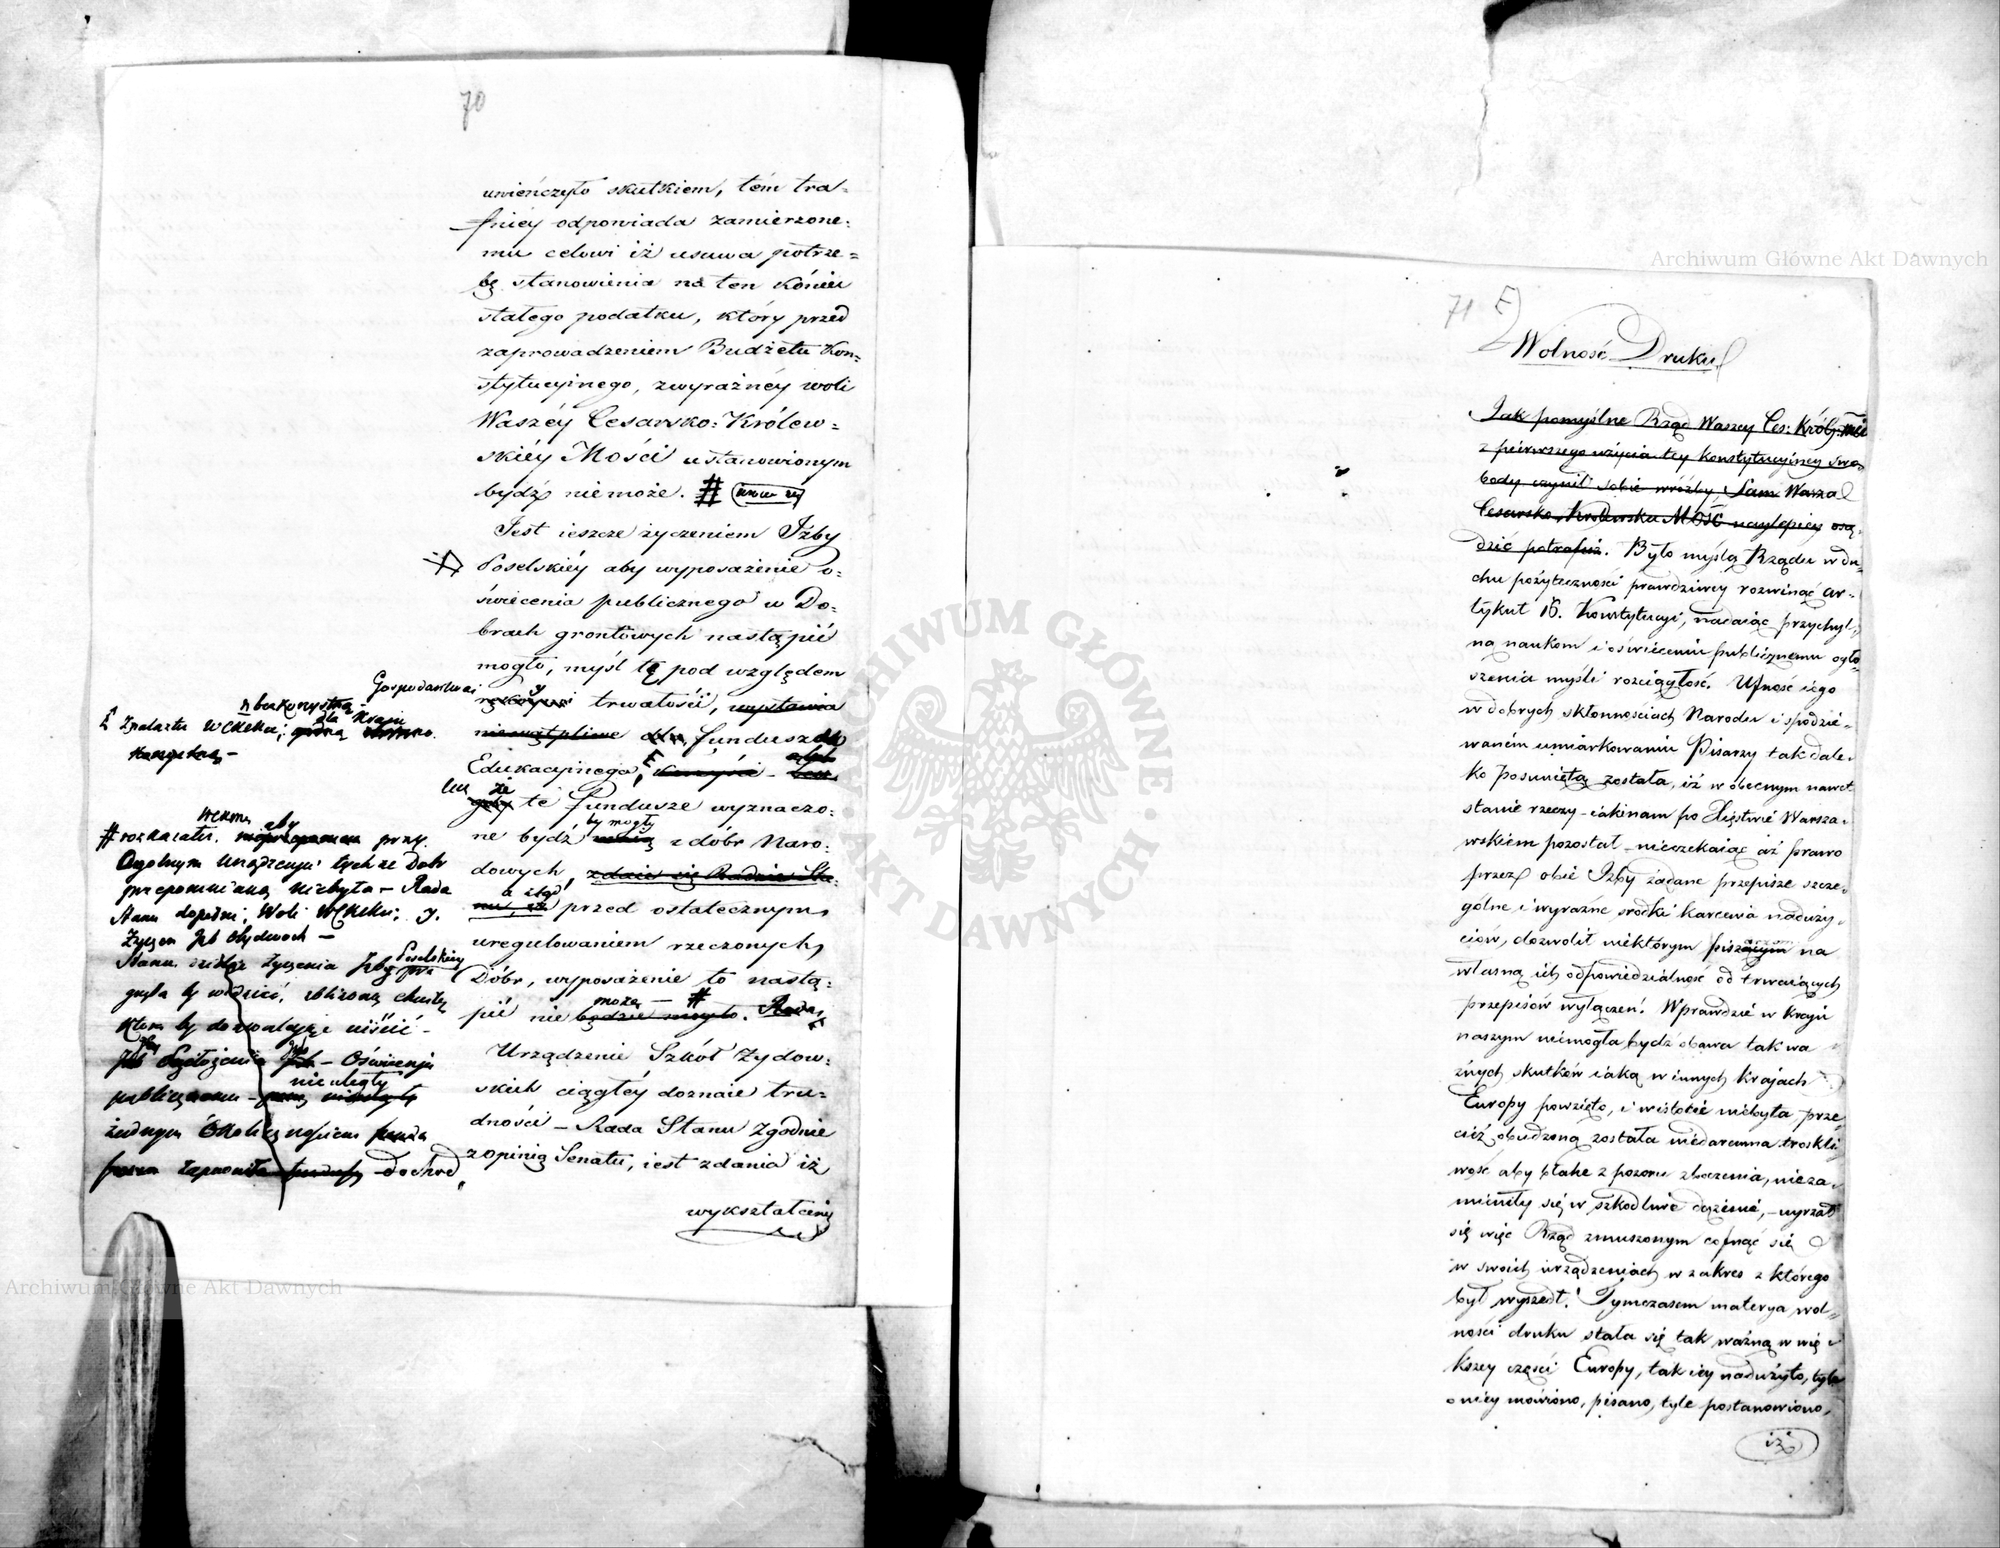 70
uwieńczyło skutkiem, tém tra-
fniéy odpowiada zamierzone-
mu celowi iż usuwa potrze-
bę stanowienia na ten koniec
stałego podatku, który przed
zaprowadzeniem Budżetu Kon-
stytucyinego, z wyraźnéy woli
Waszéy Cesarsko: Królew-
skiéy Mości ustanowionym
bydź niemoże. #
Jest ieszcze życzeniem Jzby
Poselskiéy aby wyposażenie o-
świecenia publicznego w Do-
brach grontowych nastąpić
mogło, myśl tę pod względem
trwałości, wystawia
niewątpliwe dla funduszu
Edukacyinego, korzyści -
gdy te fundusze wyznaczo-
by mogły
ne bydź z dóbr Naro-
dowych, zdaie się Radzie Sta-
nu, iż przed ostatecznym
uregulowaniem rzeczonych
Dóbr, wyposażenie to nastą-
może - #
pić nie będzie mogło. Rada
Urządzenie Szkół Żydow-
skich ciągłéy doznaie tru-
dności - Rada Stanu zgodnie
z opinią Senatu, iest zdania iż
wykształcenie
Gospodarstwa i
dla Kraiu
Znalazła WCKMć;
# rozkazała. aby przy
Ogólnym Urządzeniu tychże Dóbr
przepomnianą niebyła - Rada
Stanu dopełni, Woli WCKMci, y
Życzeń Jzb Obydwoch -
Stanu życzenia Jzby Poselskiey
Oświeceniu
nie uległy
publicznemu -
żadnym Okolicznościom
dochód
71 E
Wolność Druku
Jak pomyślne Rząd Waszey Ces: Król: Mci
z pierwszego użycia tey konstytucyiney swo-
body czynił sobie wróżby, Sam Wasza
Cesarsko Krolewska Mość naylepiey osą-
dzić potrafisz. Było myślą Rządu w du-
chu pożyteczności prawdziwey rozwinąć ar-
tykuł 16. Konstytucyi, nadaiąc przychyl-
ną naukom i oświeceniu publicznemu ogło-
szenia myśli rozciągłość. Ufność iego
w dobrych skłonnościach Narodu i spodzie-
waném umiarkowaniu Pisarzy tak dale-
ko posuniętą została, iż w obecnym nawet
stanie rzeczy - iaki nam po Xięstwie Warsza-
wskiem pozostał - nieczekaiąc aż prawo
przez obie Jzby żądane przepisze szcze-
gólne i wyraźne srodki karcenia naduży-
ciów, dozwolił niektórym piszącym na
własną ich odpowiedzialność od trwaiących
przepisów wyłączeń. Wprawdzie w kraju
naszym niemogła bydź obawa tak wa
żnych skutków iaką w innych krajach
Europy powzięto, i w istocie niebyła prze
cież obudzoną została niedaremna troskli
wość aby błahe z pozoru zboczenia, nieza-
mieniły się w szkodliwe dążenie, - uyrzał
się więc Rząd zmuszonym cofnąć się
w swoich urządzeniach w zakres z którego
był wyszedł. Tymczasem materya wol-
ności druku stała się tak ważną w wię
kszey części Europy, tak iey nadużyto, tyle
o niey mówiono, pisano, tyle postanowiono,
iż
Archiwum Główne Akt Dawnych
Archiwum Główne Akt Dawnych
ARCHIWUM GŁÓWNE AKT DAWNYCH